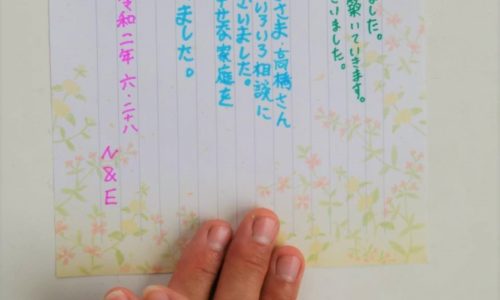 ました。
築いていきます。
いました。
さま・高橋さん
いろいろ相談に
いました。
せな家庭を
ました。
令和二年 六・二十八
N&E